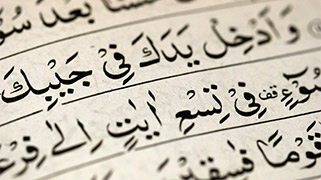 بَعْدَ
وَاَدْخِلْ يَدَكَ فِيْ جَيْبِكَ
سُوْٓءٍ قف فِيْ تِسْعِ اٰيٰتٍ اِلٰى فِرْعَ
قَوْمًا فٰسِقِيْنَ